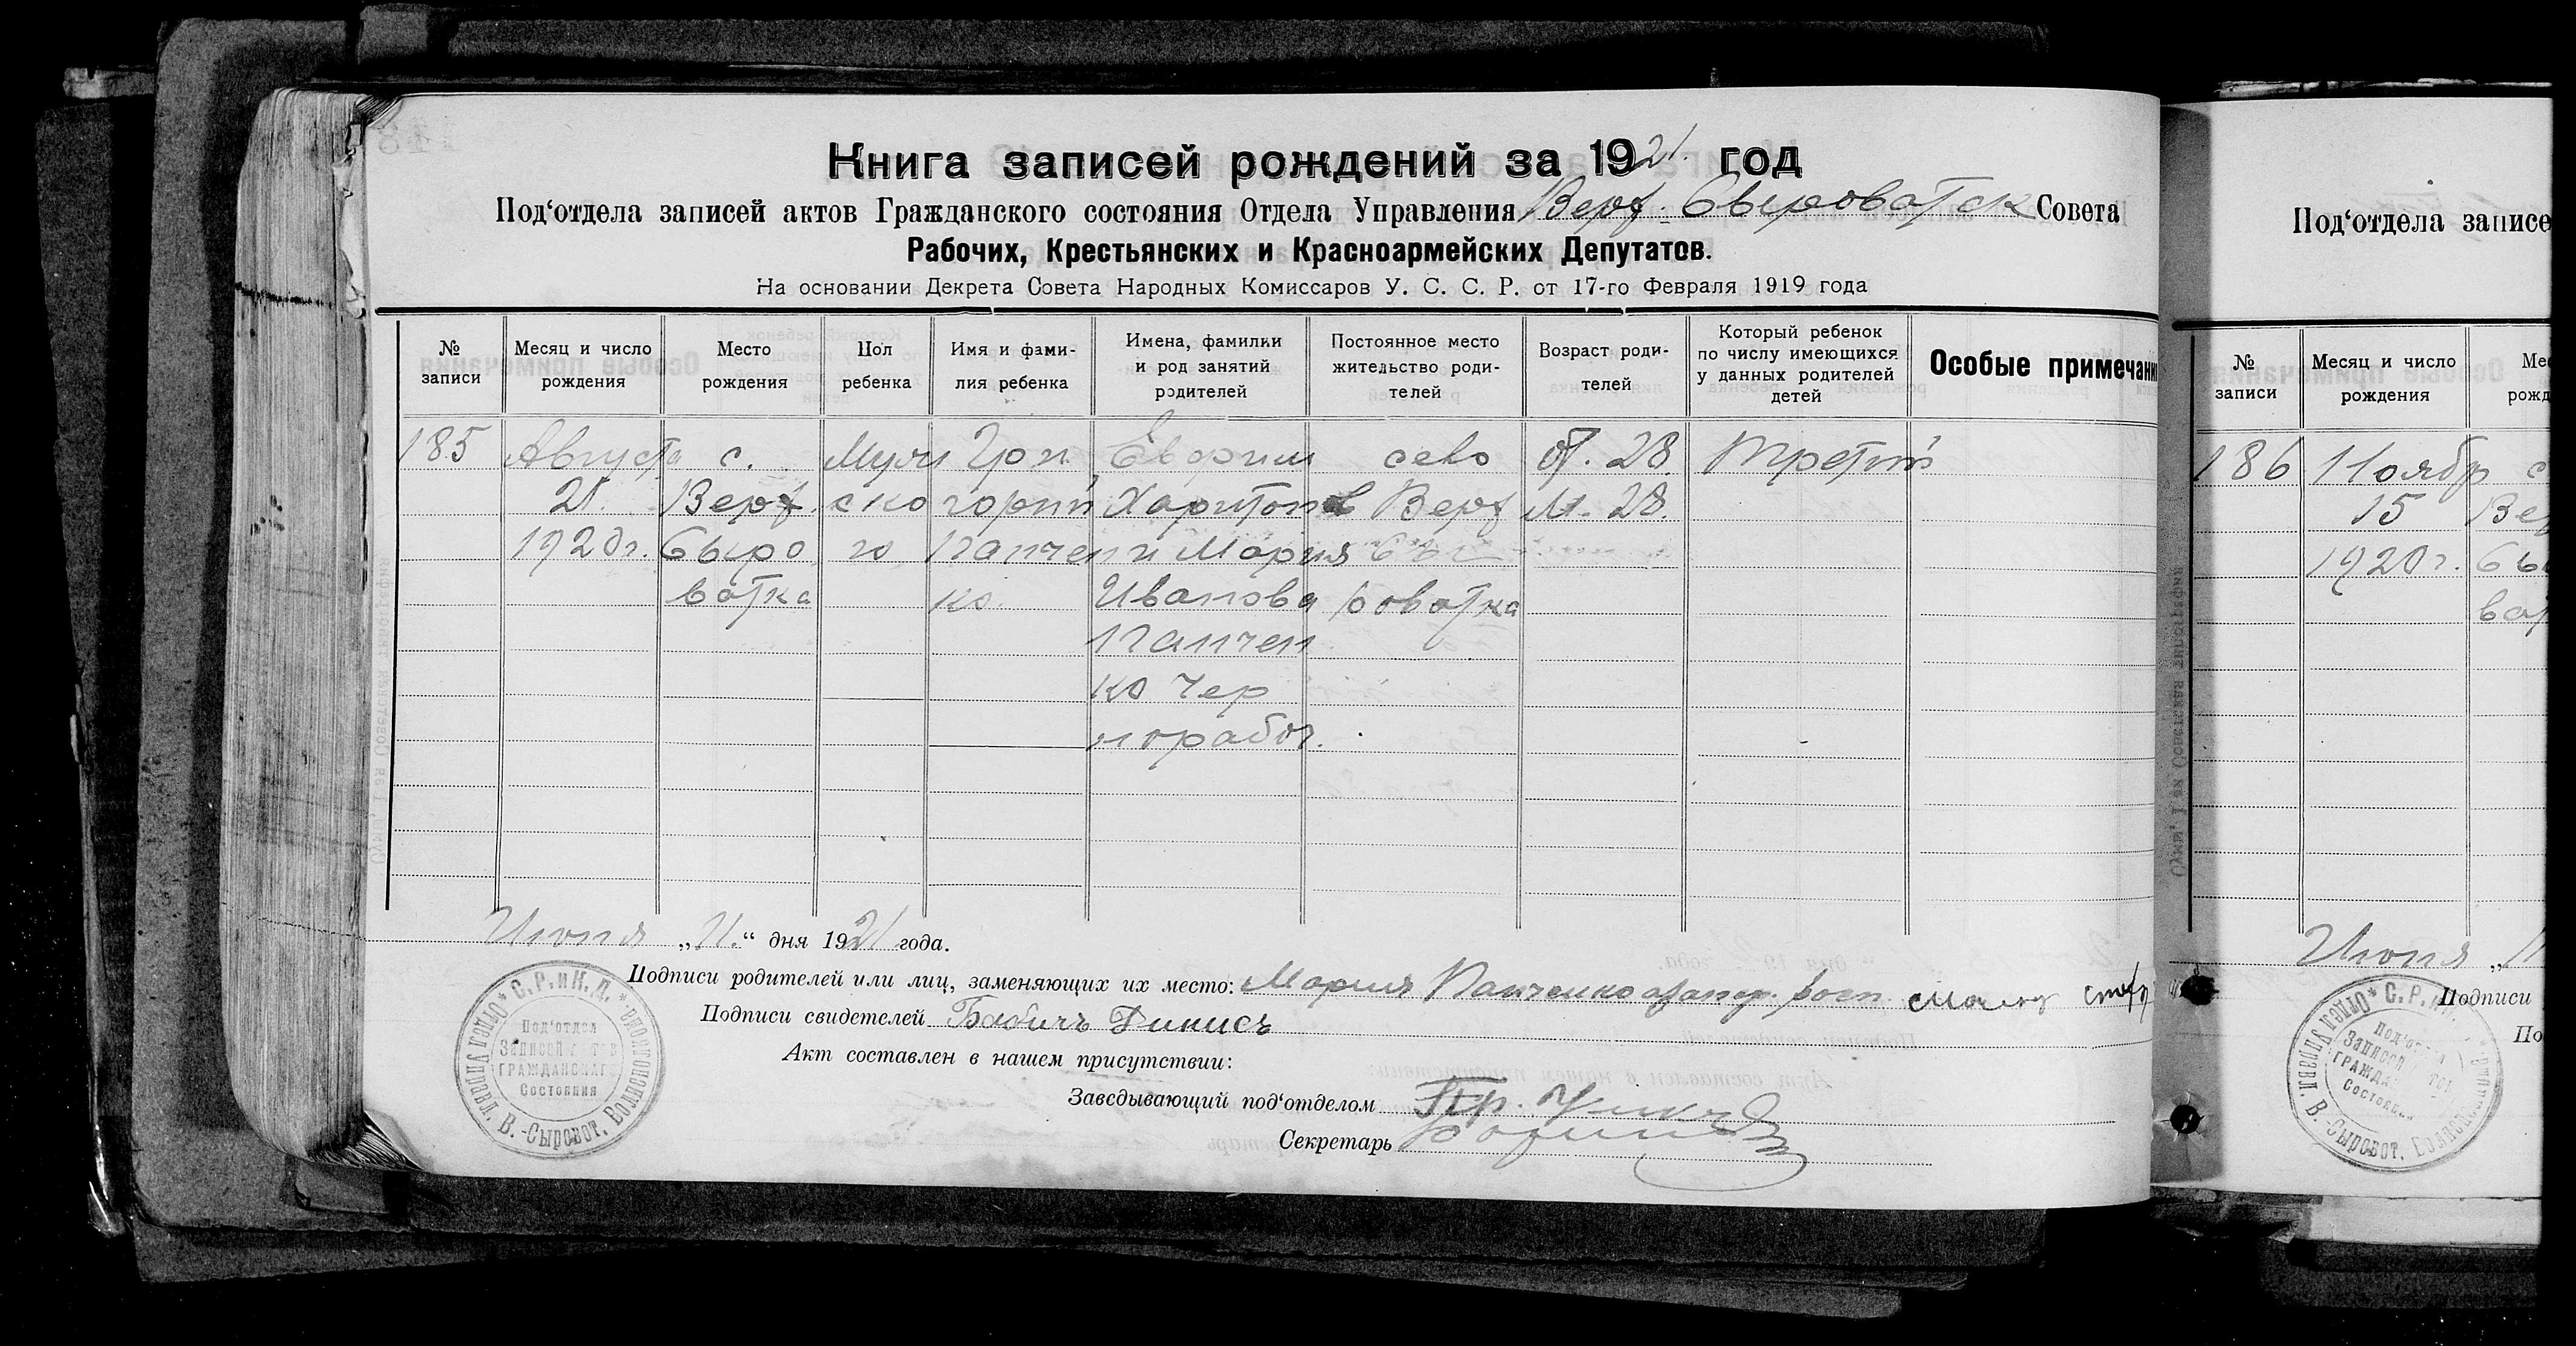 Книга записей рождений за 1921. год
Под‘отдела записей актов Гражданского состояния Отдела Управления Верх. Сыроватск Совета
Рабочих, Крестьянских и Красноармейских Депутатов.
На основании Декрета Совета Народных Комиссаров У. С. С. Р. от 17-го Февраля 1919 года
№ записи
Месяц и число рождения
Место рождения
Пол ребенка
Имя и фами-
лия ребенка
Имена, фамилии
и род занятий
родителей
Постоянное место
жительство роди-
телей
Возраст роди-
телей
Который ребенок
по числу имеющихся
у данных родителей
детей
Особые примечани
185
Августа
21.
1920г.
с.
Верх.
Сыро
ватка
Мужс
ско
го
Гри
горий
Панчен
ко
Евфим
Харитонов
и Мария
Иванова
Панчен
ко чер
норабоч.
село
Верх
Сы
роватка
от. 28.
М. 28.
Третий
Июня „11.“ дня 1921 года.
Подписи родителей или лиц, заменяющих их место: Мария Панченко
Подписи свидетелей Бабичъ Динисъ
Акт составлен в нашем присутствии:
Заведывающий под‘отделом
Секретарь
* С. Р. и К. Д. * Отдел Управл. В.-Сыроват. Волисполкома.
Под‘отдел
Записей Актов
Гражданского
Состояния
Под‘отдела записе
№ записи
Месяц и число рождения
Мес
рожд
186
Ноябр
15
1920г.
с
Ве
Сы
ват
Июня „11
Подписи
По